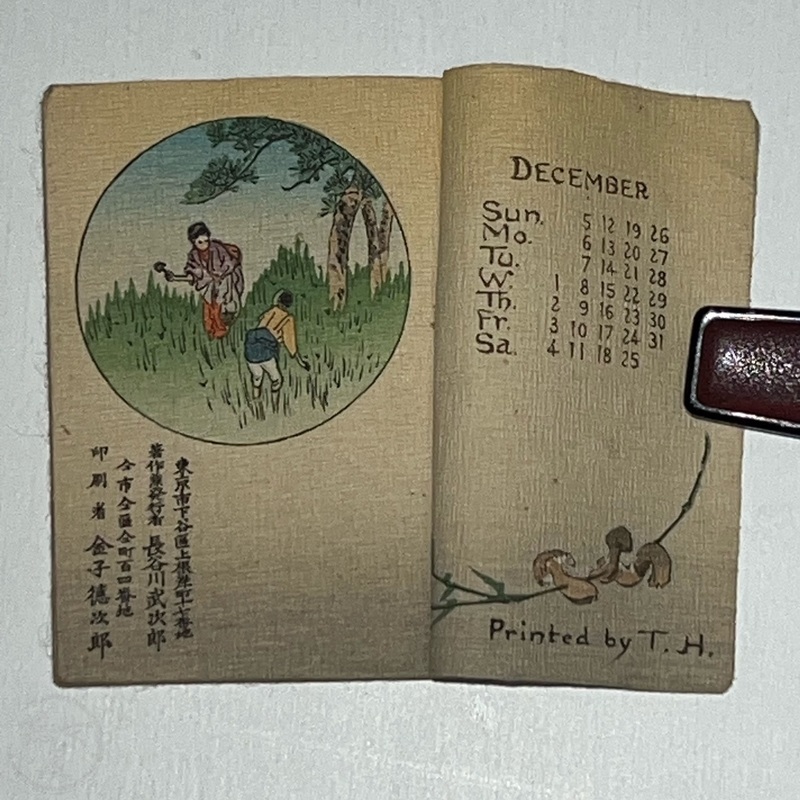 東京市下谷區上根岸町十七番地
著作兼発行者 長谷川武次郎
仝市仝區仝町百四番地
印刷者 金子德次郎
DECEMBER
Sun. 5 12 19 26
Mo. 6 13 20 27
Tu. 7 14 21 28
W. 1 8 15 22 29
Th. 2 9 16 23 30
Fr. 3 10 17 24 31
Sa. 4 11 18 25
Printed by T. H.